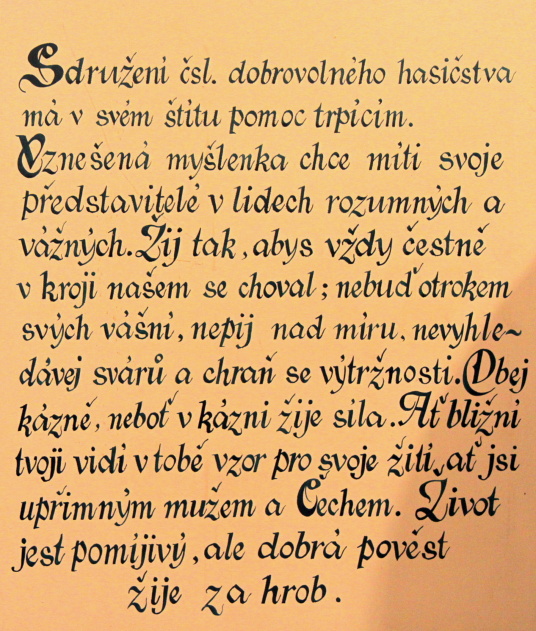 Sdružení čsl. dobrovolného hasičstva
má v svém štítu pomoc trpícím.
Vznešená myšlenka chce míti svoje
představitelé v lidech rozumných a
vážných. Žij tak, abys vždy čestně
v kroji našem se choval; nebuď otrokem
svých vášní, nepij nad míru, nevyhle~
dávej svárů a chraň se výtržnosti. Dbej
kázně, neboť v kázni žije síla. Ať bližní
tvoji vidí v tobě vzor pro svoje žití, ať jsi
upřímným mužem a Čechem. Život
jest pomíjivý, ale dobrá pověst
žije za hrob.